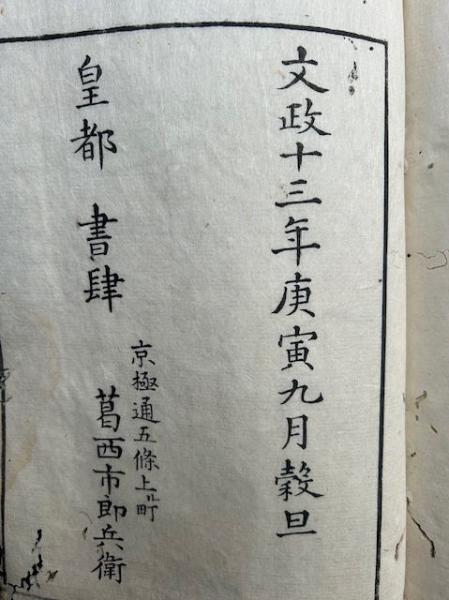 文政十三年庚寅九月穀旦
皇都 書肆
京極通五條上ル町
葛西市郎兵衛